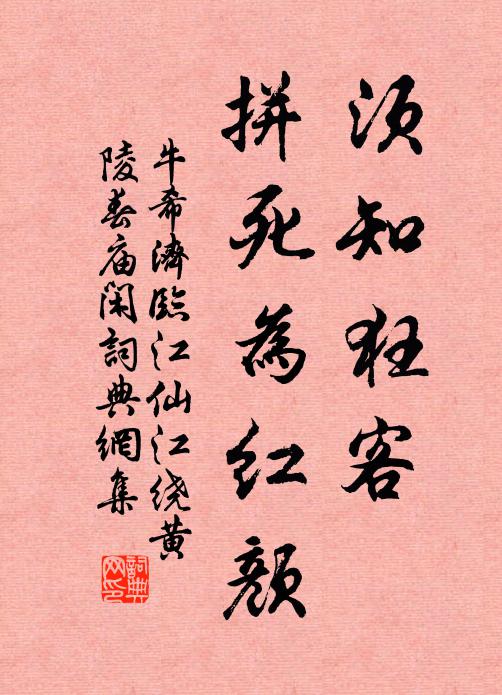 须知狂客
拼死為红颜
牛希濟臨江仙江绕黄
陵春庙闲詞典網集
詞典网印